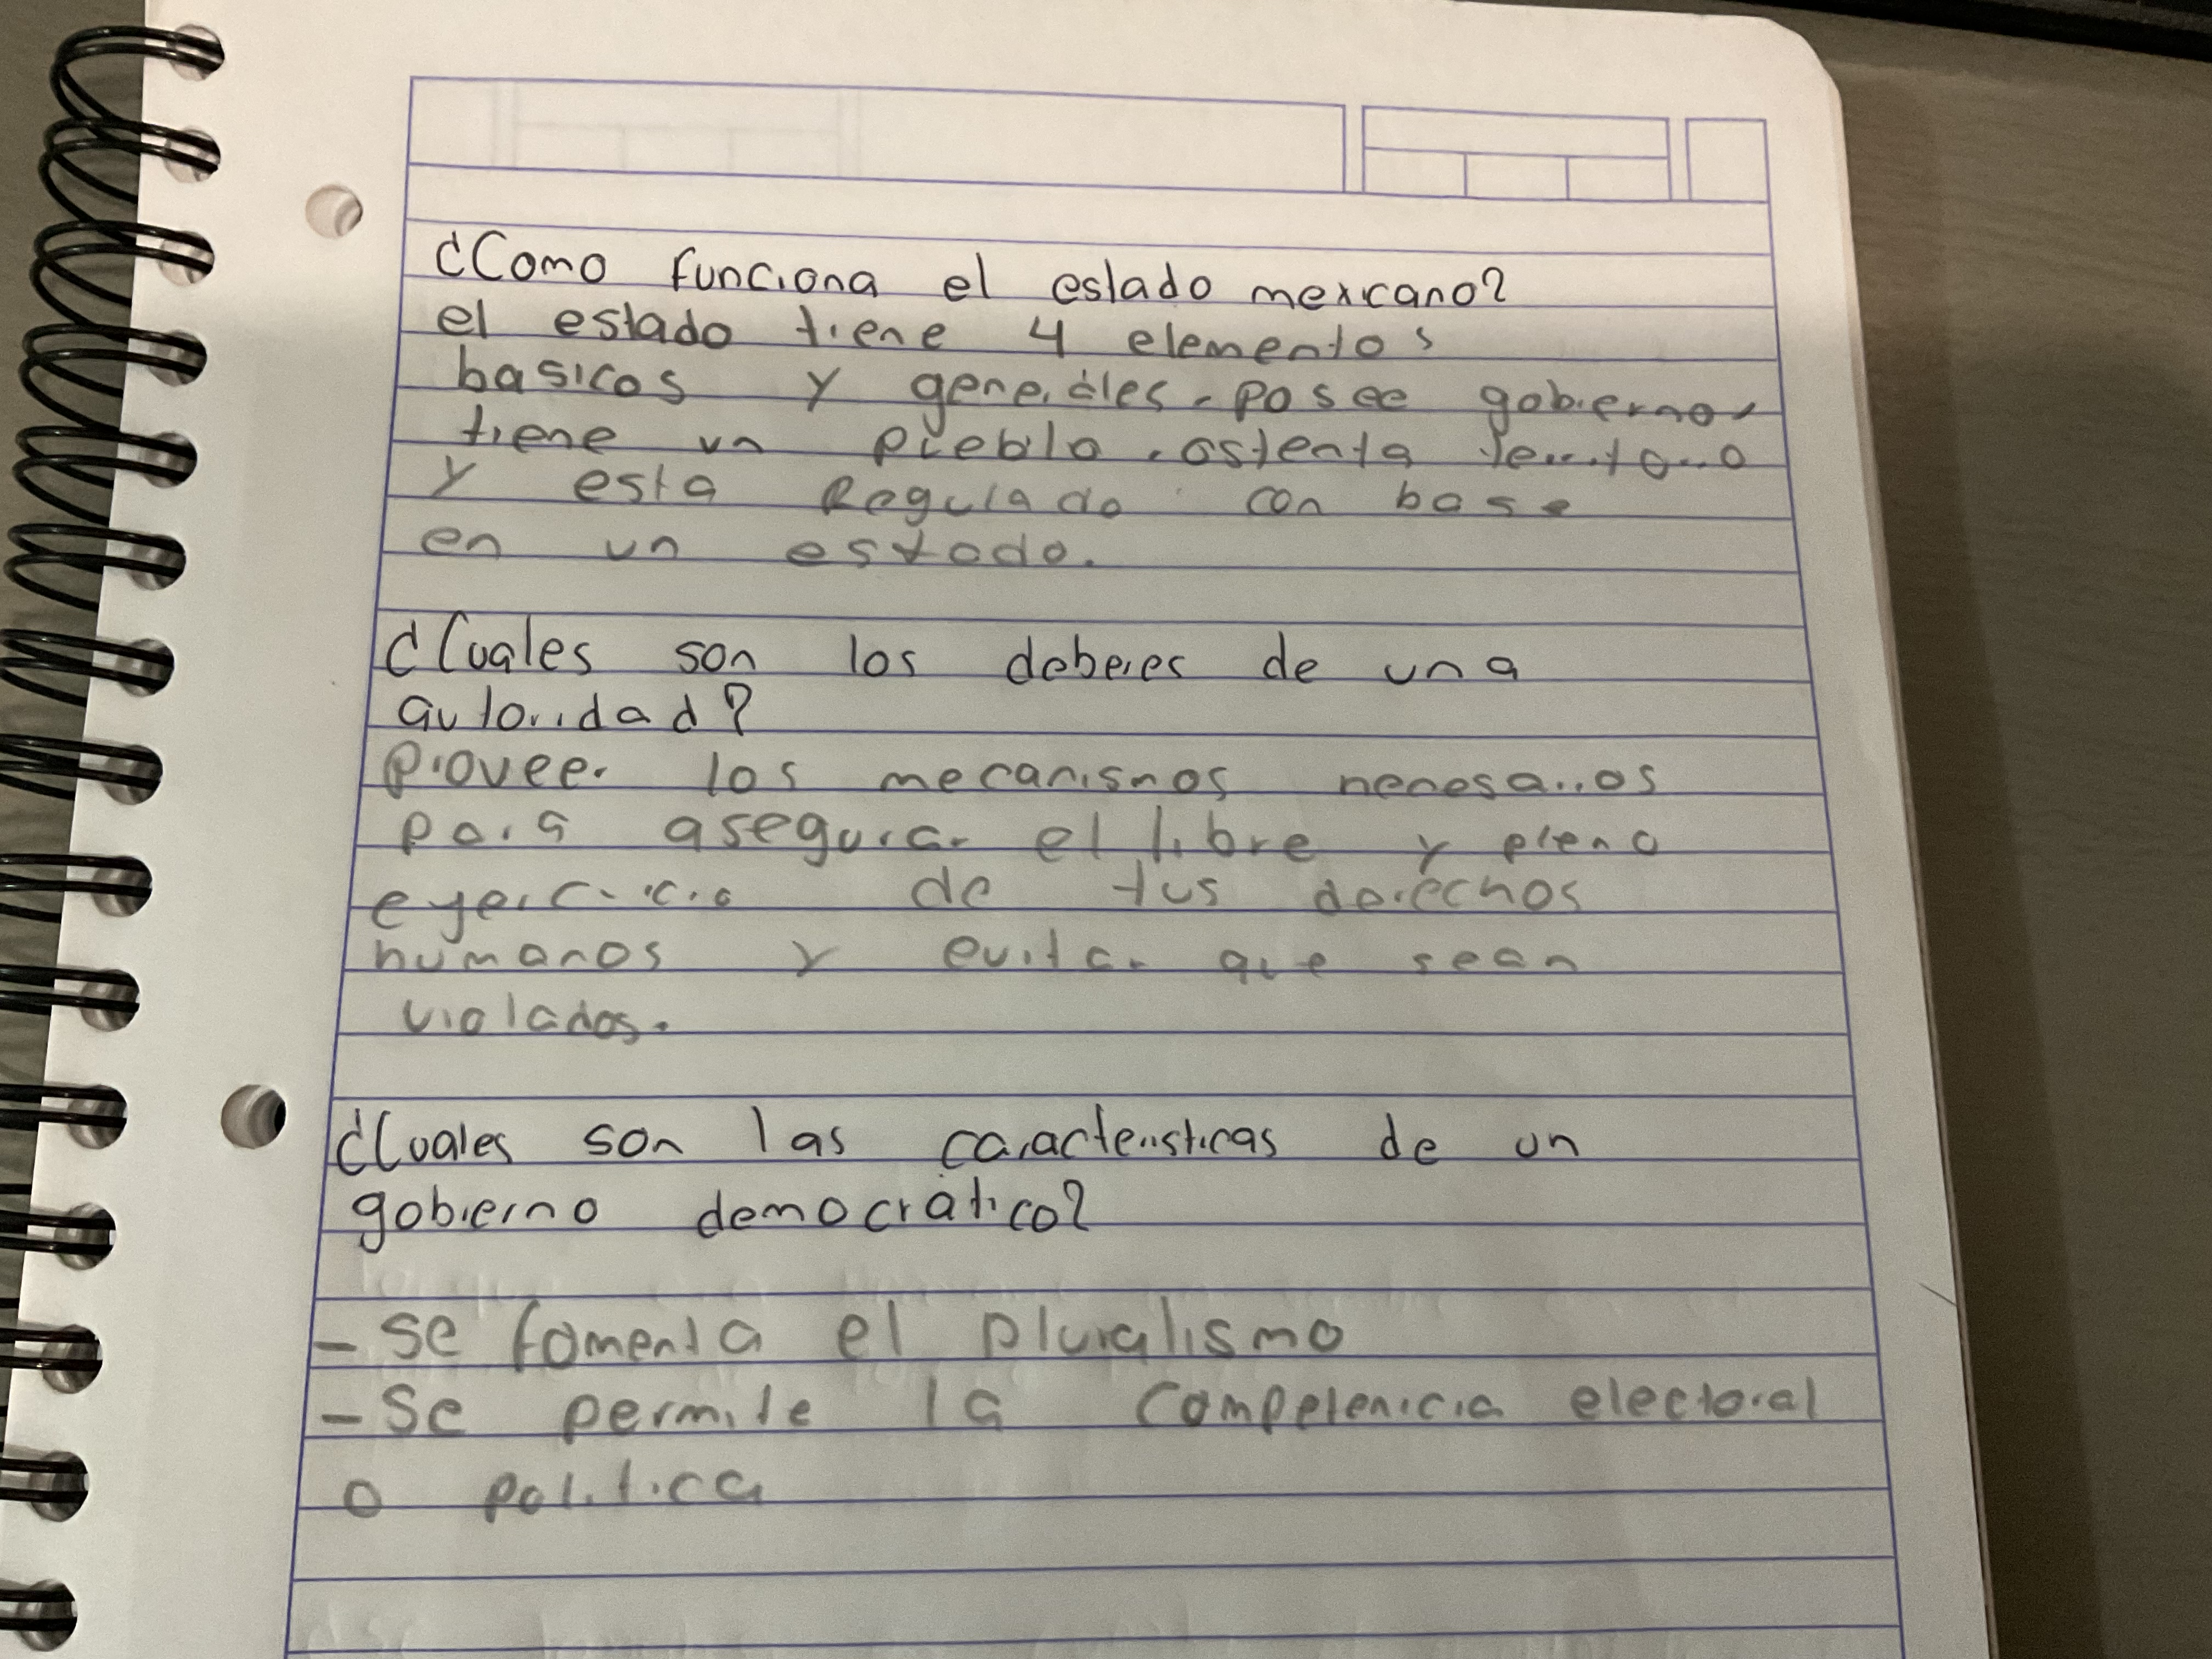 ¿Como funciona el estado mexicano?
el estado tiene 4 elementos
basicos y generales. posee gobierno,
tiene un pueblo, ostenta territorio
y esta Regulado con base
en un estado.
¿Cuales son los deberes de una
autoridad?
Proveer los mecanismos necesarios
para asegurar el libre y pleno
ejercicio de tus derechos
humanos y evitar que sean
violados.
¿Cuales son las caracteristicas de un
gobierno democrático?
- Se fomenta el pluralismo
- Se permite la competencia electoral
o politica